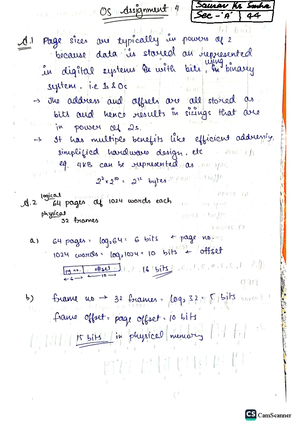 OS Assignment 4
Saurav Kr Sinha
Sec - 'A' 44
Q.1 Page sizes are typically in powers of 2
because data is stored an represented
in digital systems is with bits, using in binary
system. i.e 1s & 0s
→ The address and offsets are all stored as
bits and hence results in sizings that are
in power of 2s.
→ It has multiple benefits like efficient addressing
simplified hardware design, etc
eg. 4KB can be represented as
2² × 2¹⁰ = 2¹² bytes
Q.2 logical 64 pages of 1024 words each
physical 32 frames
a.) 64 pages = log₂64 = 6 bits ← page no.
1024 words = log₂1024 = 10 bits ← offset
offset
← 6 → ← 10 → 16 bits
b) frame no → 32 frames = log₂ 32 = 5 bits
frame offset = page offset = 10 bits
15 bits in physical memory
CS CamScanner